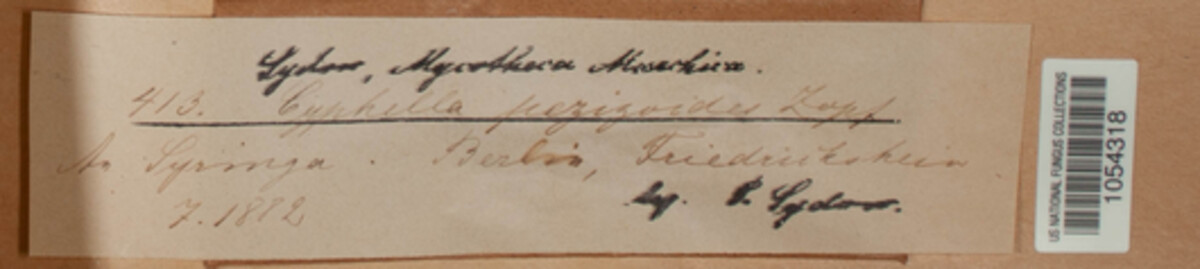 Sydow, Mycotheca Marchica.
413. Cyphella pezizoides Zopf.
An Syringa. Berlin, Friedrichshain
7. 1882
lg. P. Sydow.
US NATIONAL FUNGUS COLLECTIONS
1054318